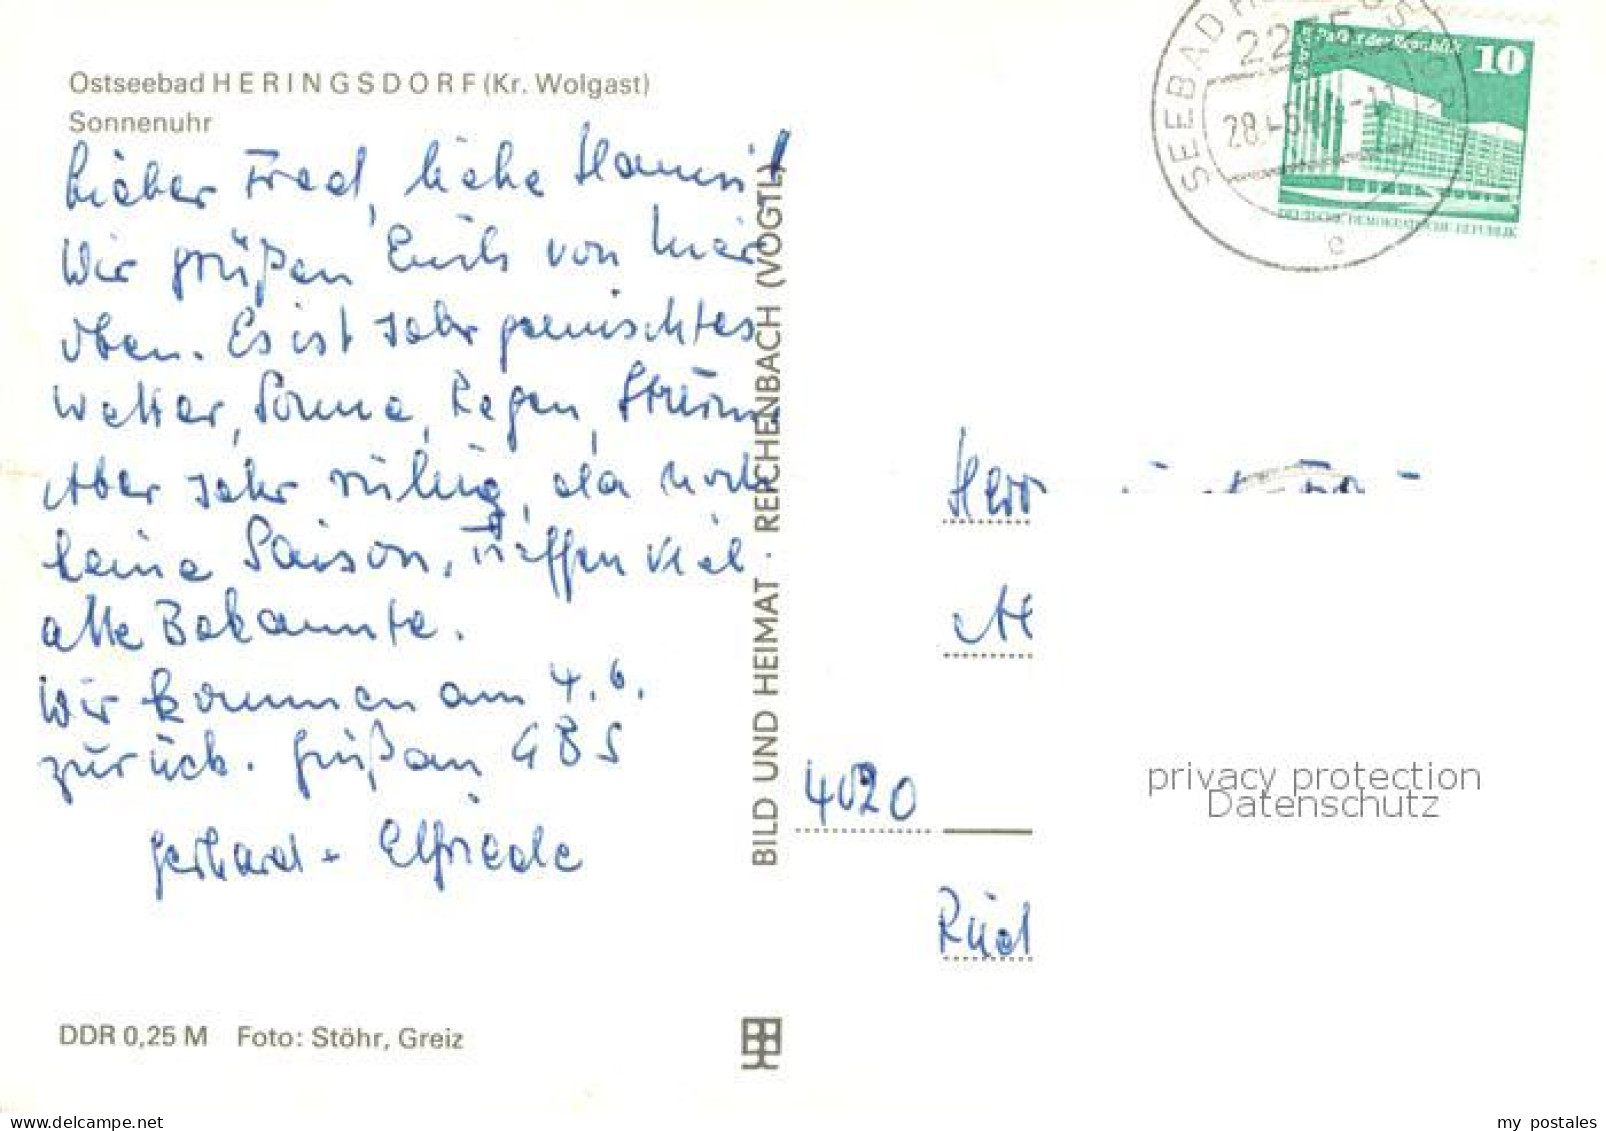 Ostseebad HERINGSDORF (Kr. Wolgast)
Sonnenuhr
Lieber Fred, liebe Hanni!
Wir grüßen Euch von hier
oben. Es ist sehr gemischtes
Wetter, Sonne, Regen, Sturm
Aber sehr ruhig, da noch
keine Saison, treffen viel
alte Bekannte.
Wir kommen am 4.6.
zurück. Grüßen
Gerhard + Elfriede
DDR 0,25 M Foto: Stöhr, Greiz
BILD UND HEIMAT · REICHENBACH (VOGTL)
SEEBAD
10
Palast der Republik
DEUTSCHE DEMOKRATISCHE REPUBLIK
e
Herr
4020
privacy protection
Datenschutz
delcampe.net
my_postales